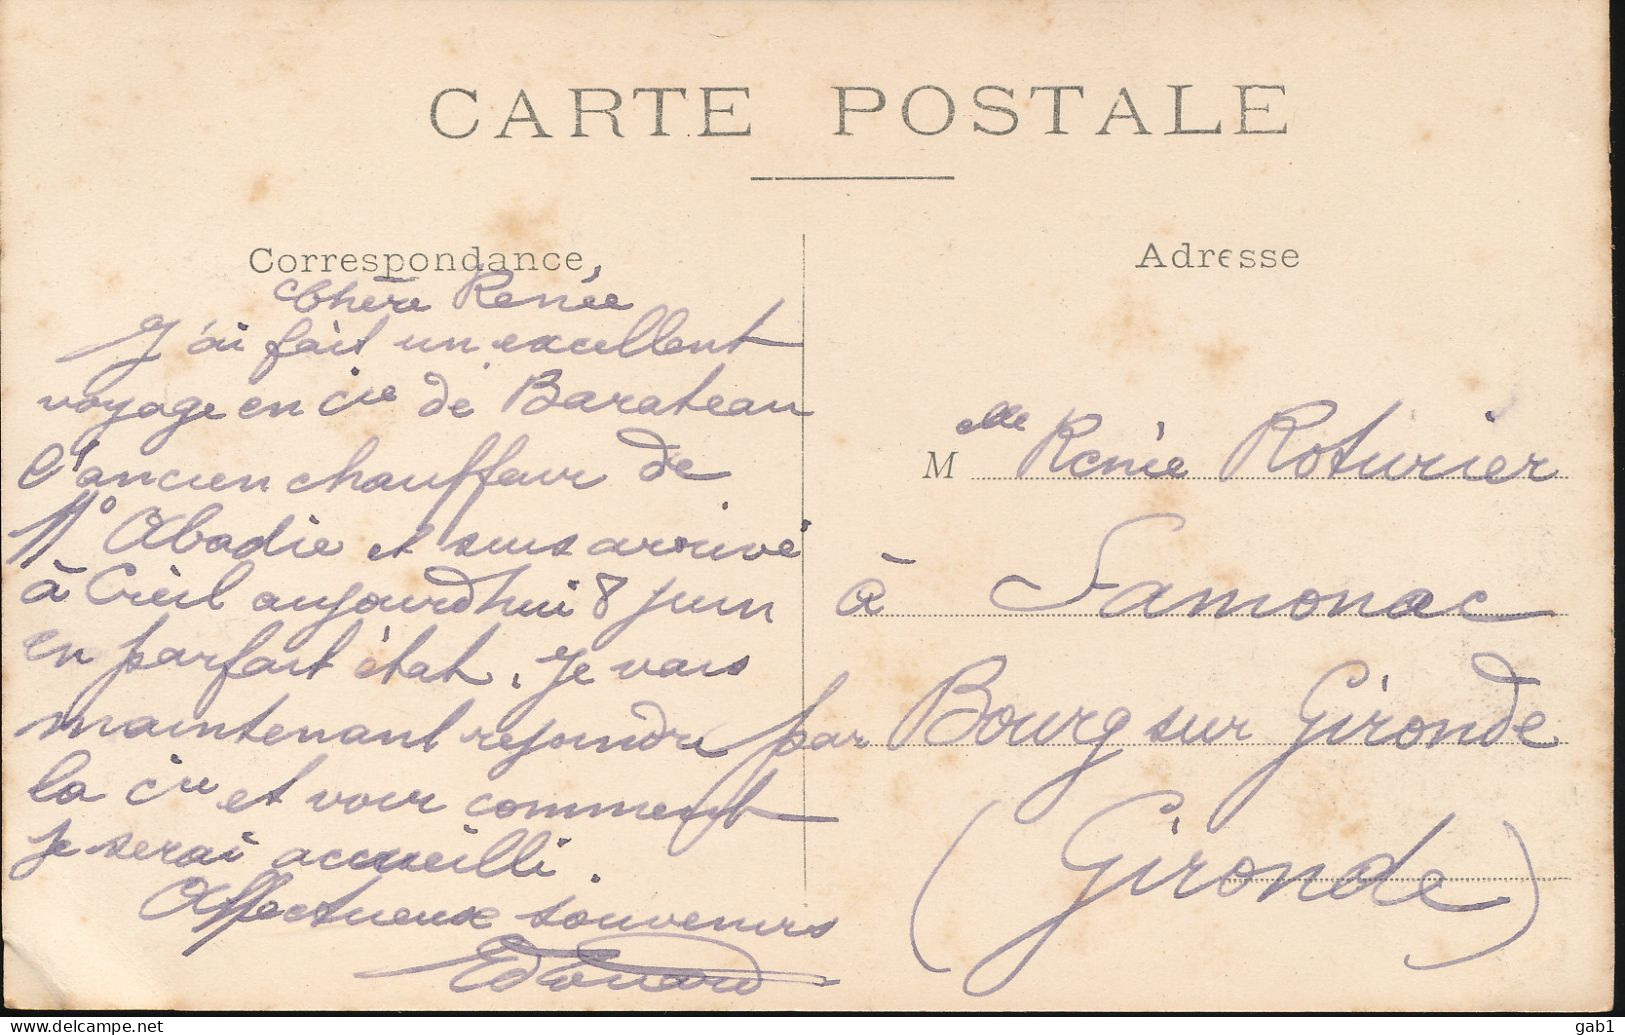 CARTE POSTALE
Correspondance
Chère Renée
J'ai fait un excellent
voyage en Cie de Barateau
l'ancien chauffeur de
Mr Abadie et suis arrivé
à Creil aujourd'hui 8 juin
en parfait état. Je vais
maintenant rejoindre
la Cie et voir comment
je serai accueilli.
Affectueux souvenirs
Edouard
Adresse
Melle Renée Roturier
à Samonac
par Bourg sur Gironde
(Gironde)
delcampe.net
gab1